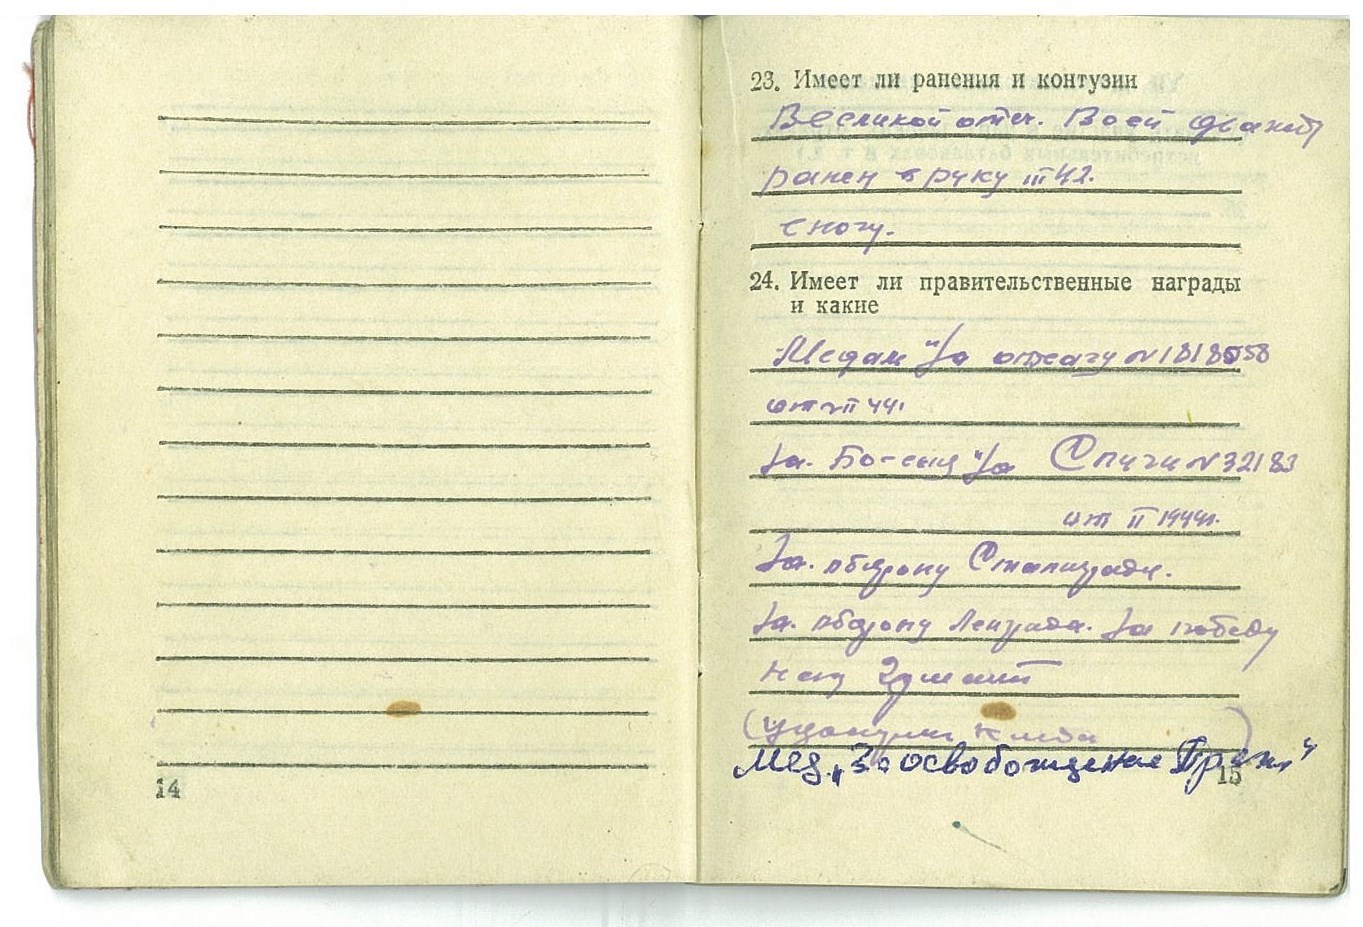 14
23. Имеет ли ранения и контузии
Великой отеч. Воей
ранен в руку III 42.
с ногу.
24. Имеет ли правительственные награды
и какие
Медаль "За отвагу N1818558
от VII 44.
За. "За N32183
от II 1944г.
За. оборону Сталинграда.
За. оборону Ленграда. За победу
над
Мед. „За освобождение Праги"
15